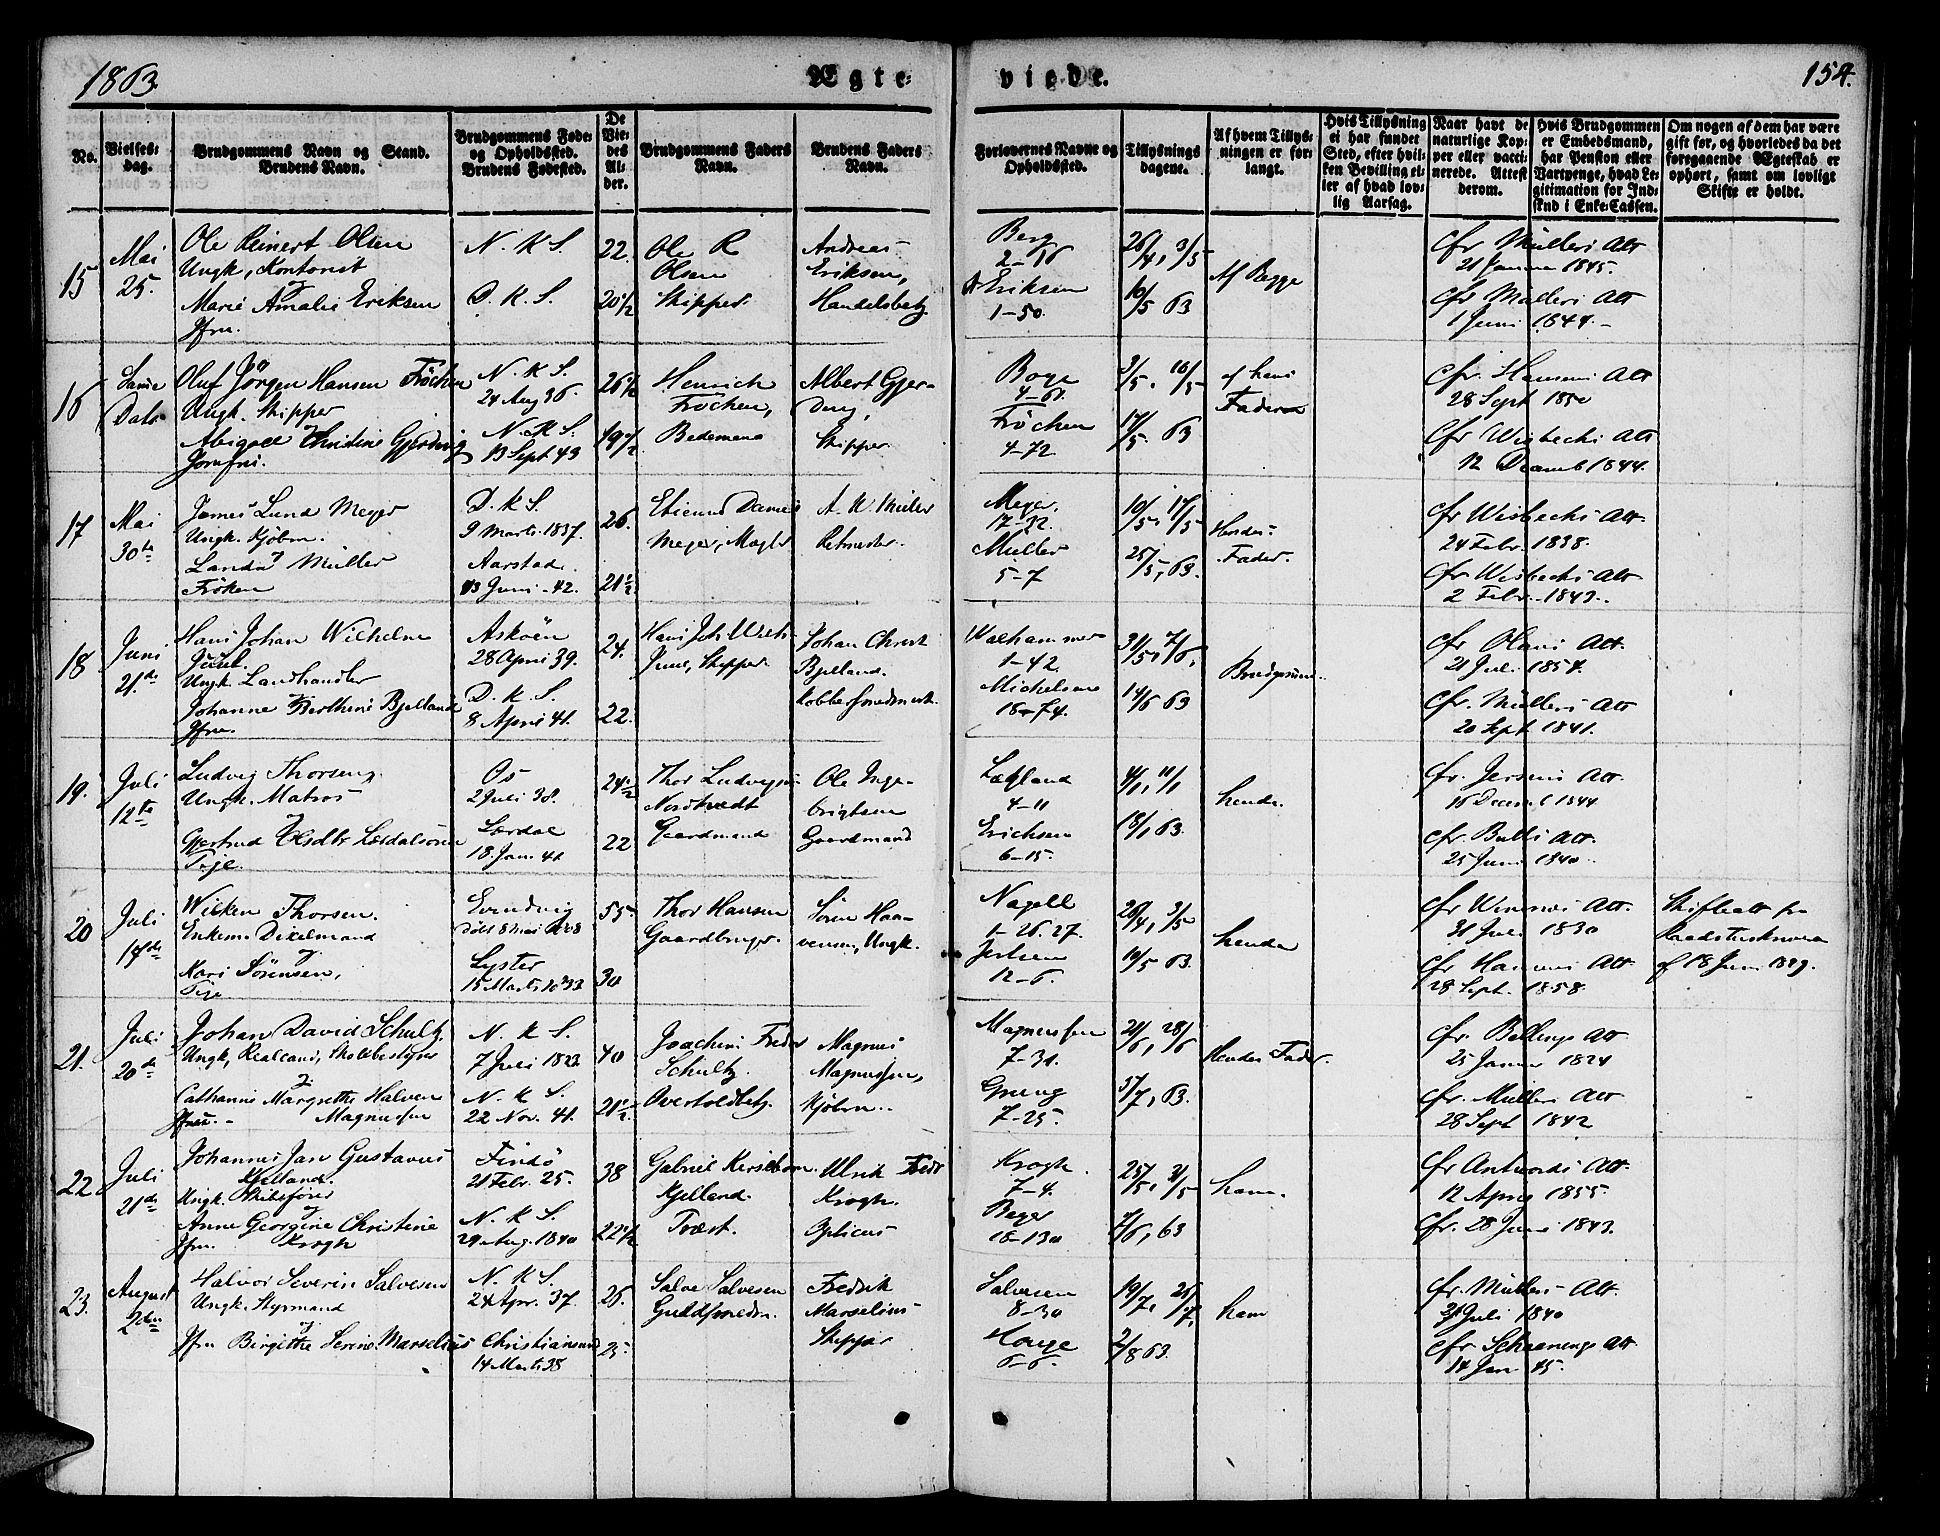 1863.
Ægte-
viede.
154.
No.
Vielses-
dag.
Brudgommens Navn og Stand.
Brudens Navn.
Brudgommens Føde-
og Opholdssted.
Brudens Fødested.
De
Vie-
des
Al-
der.
Brudgommens Faders
Navn.
Brudens Faders
Navn.
Forlovernes Navne og
Opholdssted.
Tillysnings
dagene.
Af hvem Tillys-
ningen er for-
langt.
Hvis Tillysning
ei har fundet
Sted, efter hvil-
ken Bevilling ei-
ler af hvad lov-
lig Aarsag.
Naar havt de
naturlige Kop-
per eller vacci-
nerede. Attest
derom.
Hvis Brudgommen
er Embedsmand,
har Pension eller
Vartpenge, hvad Le-
gitimation for Ind-
skud i Enke-Cassen.
Om nogen af dem har være
gift før, og hvorledes da det
foregaaende Ægteskab er
ophørt, samt om lovligt
Skifte er holdt.
15
Mai
25.
Ole Reinert Olsen
Ungk, Kontorist
og
Marie Amalie Eriksen
Jfru.
N. K S.
D. K. S.
22.
20 1/2
Ole R
Olsen
Skipper
Andreas
Eriksen,
Handelsbetj.
Berg
2-16
Eriksen
1-50.
26/4, 3/5
10/5 63
Af Bagge
cfr Müllers Att
21 Januar 1845.
cfr Müllers Att
1 Juni 1844.
16
Samme
Dato
Oluf Jörgen Hansen Fröchen
Ungk. Skipper
og
Abigael Christine Gjerding
Jomfru.
N. K S.
24 Aug 36.
N. K S.
13 Sept 43
26 1/2
19 1/2
Henrich
Fröchen,
Bedemand
Albert Gjer-
ding,
Skipper
Boge
4-61.
Fröchen
4-72
3/5, 10/5
17/5. 63
af hans
Fader
cfr. Hansens Att
28 Sept 1850
cfr Wisbechs Att
12 Decemb 1844.
17
Mai
30te
James Lund Meyer
Ungk. Kjöbm.
og
Landa Müller
Fröken
D. K S.
9 Marts 1837.
Aarstad.
13 Juni 42.
26.
21 1/2
Etienne Daniel
Meyer, Mægler
A. W Müller
Ritmester.
Meyer,
17-32.
Müller
5-7
10/5, 17/5
25/5, 63.
Hendes
Fader.
cfr Wisbechs Att.
24 Febr. 1838.
cfr Wisbechs Att
2 Febr. 1843.
18
Juni
21de
Hans Johan Wilhelm
Juul.
Ungk. Landhandler
og
Johanne Berthine Bjelland
Jfru.
Askøen
28 April 39.
D. K S.
8 April 41.
24.
22.
Hans Joh Wilh
Juul, Skipper
Johan Christ
Bjelland.
Kobbersmedmest.
Walhammer
1-42.
Michelsen
18-74.
31/5, 7/6,
14/6 63
Brudgommen.
cfr Olans Att.
21 Juli 1854.
cfr. Müllers Att
20 Sept 1841.
19.
Juli
12te
Ludvig Thorsen
Ungk. Matros
og
Gjertrud Olsdtr Lærdalsören
Pige.
Os
2 Juli 38.
Lærdal
18. Jan. 41
24 1/2
22
Thor Ludvigsen
Nordtvedt
Gaardmand
Ole Inge-
brigtsen
Gaardmand
Lægland
4-11
Erichsen
6-15.
4/1, 11/1
18/1 63.
hende.
cfr. Jersins Att.
16 Decemb 1844
cfr. Bulls Att.
25 Juni 1840.
20
Juli
14de
Wilken Thorsen.
Enkem. Dixelmand
og
Kari Sørensen,
Pige
Evindvig
döbt 8 Mai 1808
Lyster
15 Marts 1833
55.
30
Thor Hansen
Gaardbruger.
Sören Haa-
vensen, Ungk.
Nagell
1-26.27.
Jersum
12-6.
26/4, 3/5
10/5 63.
hende
cfr Winsnes Att.
31 Juli 1830
cfr Hansens Att.
28 Sept. 1858.
Skifteatt fra
Raadstueskriveren
af 18 Juni 1849.
21.
Juli
20de
Johan David Schultz.
Ungk, Realcand, Skolebestyrer
og
Cathanine Margrethe Halven
Jfru. Magnussen
N. K S.
7 Juli 1823
N. K S.
22 Nov. 41.
40
21 1/2
Joachim Fredr
Schultz.
Overtoldbetj.
Magnus
Magnussen,
Kjöbm.
Magnussen
7-31.
Grung
7-25.
21/6, 28/6
5/7, 63.
Hendes Fader.
cfr. Bellings Att
25 Januar 1824
cfr. Müllers Att
28 Sept 1842
22
Juli
21de
Johannes Jan Gustavus
Kjelland.
Ungk. Skibsfører
og
Anne Georgine Christine
Jfru. Krogh
Findö
21 Febr. 25.
N. K S.
29 Aug. 1840
38
22 1/2
Gabriel Kirsebom
Kjelland.
Præst.
Ulrik Fredr
Krogh.
Opticus
Krogh.
7-4.
Beyer
18-130
25/5, 31/5
7/6, 63
ham.
cfr Antwords Att.
12 April 1855.
cfr. 28 Juni 1843.
23.
August
2den
Halvor Severin Salvesen
Ungk. Styrmand
og
Jfru Birgitte Serine Marselius
N. K S.
24 Apr. 37.
Christiansund
14 Marts 38
26.
25.
Salve Salvesen
Guldsmedm.
Fredrik
Marselius
Skipper
Salvesen
8-30
Houge
6-6.
19/7, 26/7,
2/8 63.
ham
cfr. Müllers Att.
21 Juli 1840
cfr. Schaanings Att.
14 Jan 45.